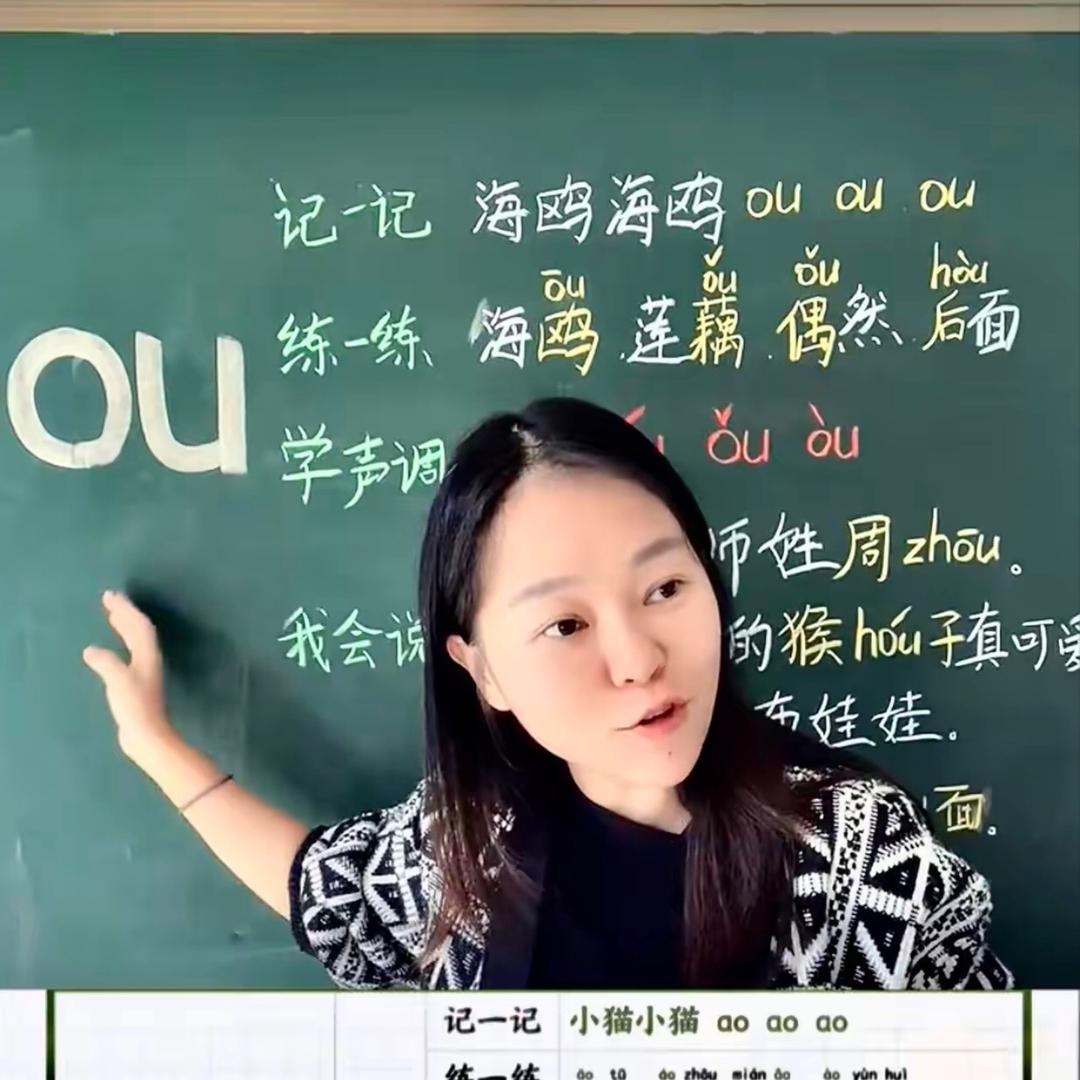 ou
记一记 海鸥海鸥 ou ou ou
ōu ǒu ǒu hòu
练一练 海鸥 莲藕 偶然 后面
学声调 ǒu òu
师姓周 zhōu。
我会说 的猴 hóu 子真可爱
布娃娃。
面。
记一记 小猫小猫 ao ao ao
练一练 áo zhōu mián ǎo ào yùn huì